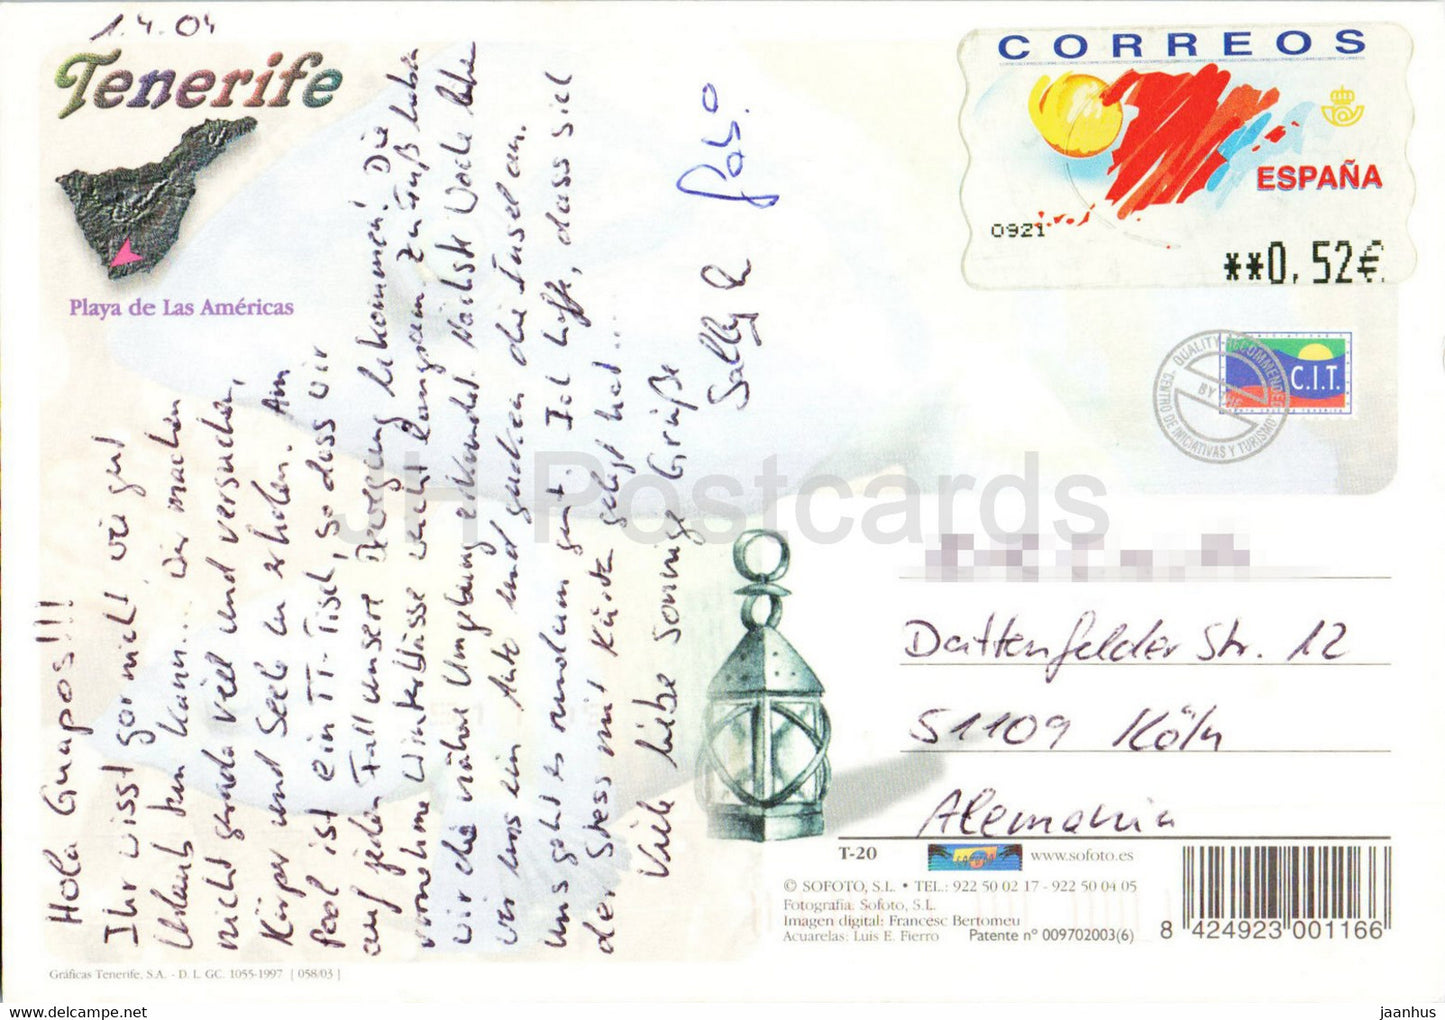 1.4.04
Tenerife
Playa de Las Américas
Hola Guapos!!!
Ihr wisst gar nicht, wie gut
Urlaub tun kann... wir machen
nicht grade viel und versuchen,
Körper und Seele zu erholen. Am
Pool ist ein TT-Tisch, so dass wir
auf jeden Fall unsere Bewegung bekommen! Die
vornehme Winterblässe weicht langsam, zu Fuß haben
wir die nähere Umgebung erkundet. Nächste Woche leihe
wir uns ein Auto und gucken die Insel an.
Uns geht es rundum gut, ich hoffe, dass sich
der Stress mit Kürtz gelegt hat...
Viele liebe sonnige Grüße
Sally &
CORREOS
ESPAÑA
0921
**0,52€
QUALITY RECOMMENDED
BY THE
CENTRO DE INICIATIVAS Y TURISMO
C.I.T.
JH Postcards
Dattenfelder Str. 12
51109 Köln
Alemania
T-20
www.sofoto.es
© SOFOTO, S.L. • TEL.: 922 50 02 17 - 922 50 04 05
Fotografía: Sofoto, S.L.
Imagen digital: Francesc Bertomeu
Acuarelas: Luis E. Fierro
Patente nº 009702003(6)
8 424923 001166
Gráficas Tenerife, S.A. - D. L. GC. 1055-1997 [ 058/03 ]
www.delcampe.net
jaanhus